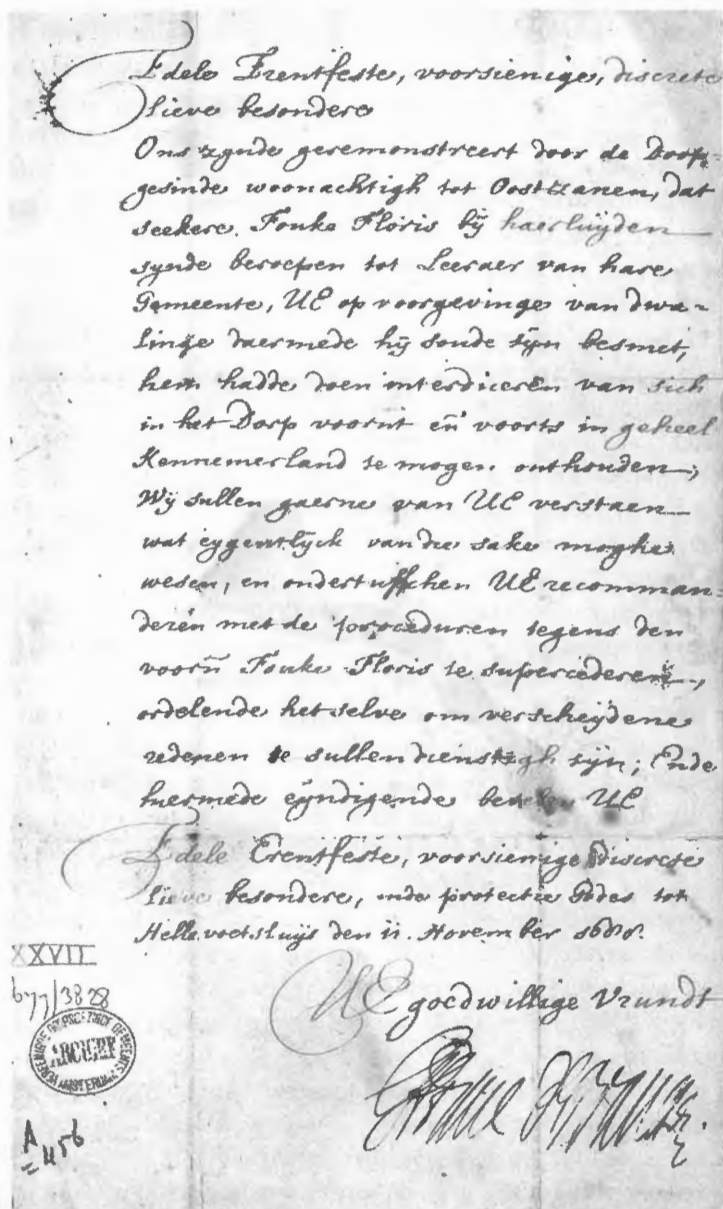 Edele Erentfeste, voorsienige, discrete
lieve besondere
Ons zynde geremonstreert door de Doops-
gesinde woonachtigh tot Oostzanen, dat
seekere Fouke Floris bij haerluijden
synde beroepen tot Leeraer van hare
Gemeente, UE op voorgevinge van dwa-
linge daermede hij soude sijn besmet,
hem hadde doen interdiceren van sich
in het Dorp voornt en voorts in geheel
Kennemerland te mogen onthouden;
Wij sullen gaerne van UE verstaen
wat eygentlyck van die sake moghe
wesen, en ondertusschen UE recomman-
deren met de proceduren tegens den
voorn Fouke Floris te supercederen,
ordelende hetselve om verscheydene
redenen te sullen dienstigh sijn; Ende
hiermede eyndigende bevelen UE
Edele Erentfeste, voorsienige discrete
lieve besondere, inde protectie Godes tot
Hellevoetsluijs den 11. November 1688.
UE goedwillige Vrundt
XXVII
677/3828
ARCHIEF
AMSTERDAM
A
456